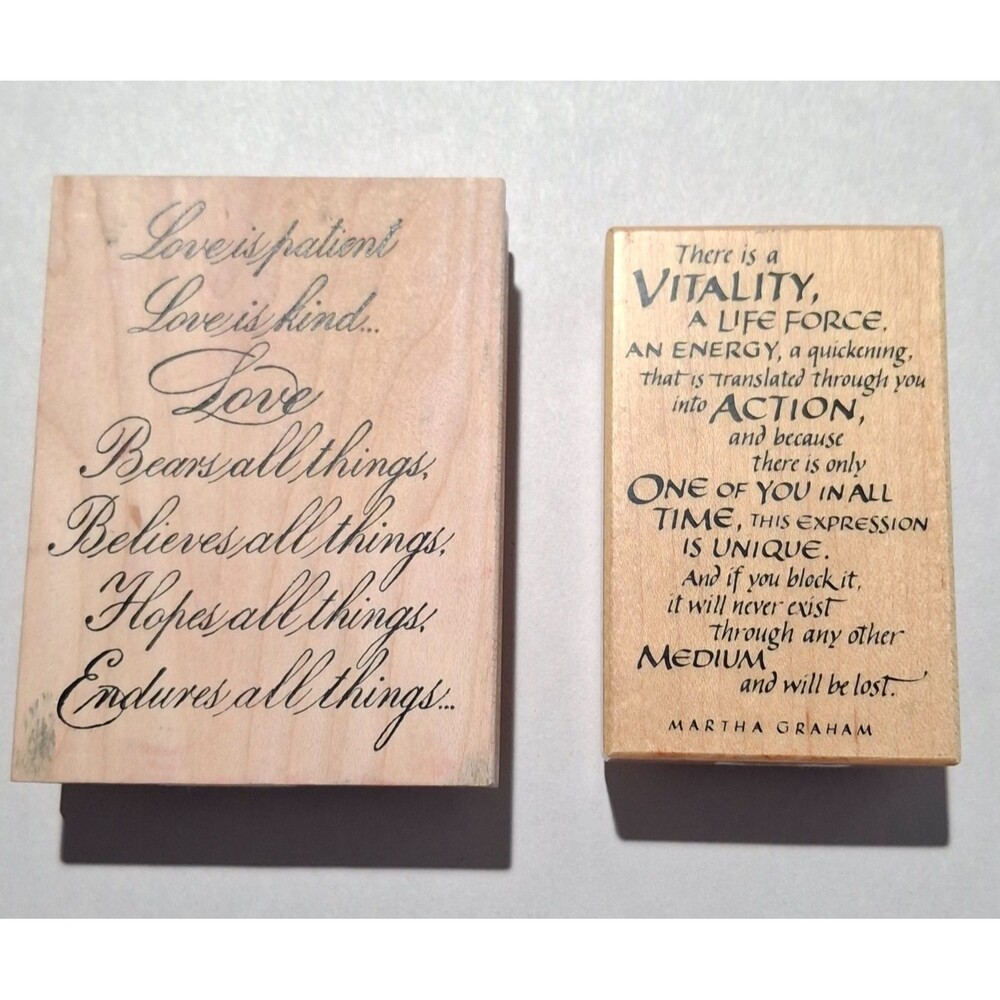 Love is patient
Love is kind...
Love
Bears all things,
Believes all things,
Hopes all things,
Endures all things...
There is a
VITALITY,
A LIFE FORCE,
AN ENERGY, a quickening,
that is translated through you
into ACTION,
and because
there is only
ONE OF YOU IN ALL
TIME, THIS EXPRESSION
IS UNIQUE.
And if you block it,
it will never exist
through any other
MEDIUM
and will be lost.
MARTHA GRAHAM